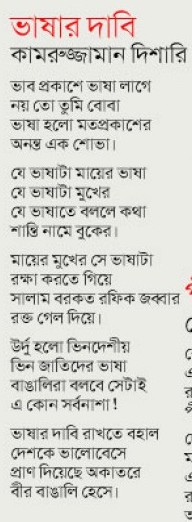 ভাষার দাবি
কামরুজ্জামান দিশারি
ভাব প্রকাশে ভাষা লাগে
নয় তো তুমি বোবা
ভাষা হলো মতপ্রকাশের
অনন্ত এক শোভা।
যে ভাষাটা মায়ের ভাষা
যে ভাষাটা মুখের
যে ভাষাতে বললে কথা
শান্তি নামে বুকের।
মায়ের মুখের সে ভাষাটা
রক্ষা করতে গিয়ে
সালাম বরকত রফিক জব্বার
রক্ত গেল দিয়ে।
উর্দু হলো ভিনদেশীয়
ভিন জাতিদের ভাষা
বাঙালিরা বলবে সেটাই
এ কোন সর্বনাশা!
ভাষার দাবি রাখতে বহাল
দেশকে ভালোবেসে
প্রাণ দিয়েছে অকাতরে
বীর বাঙালি হেসে।